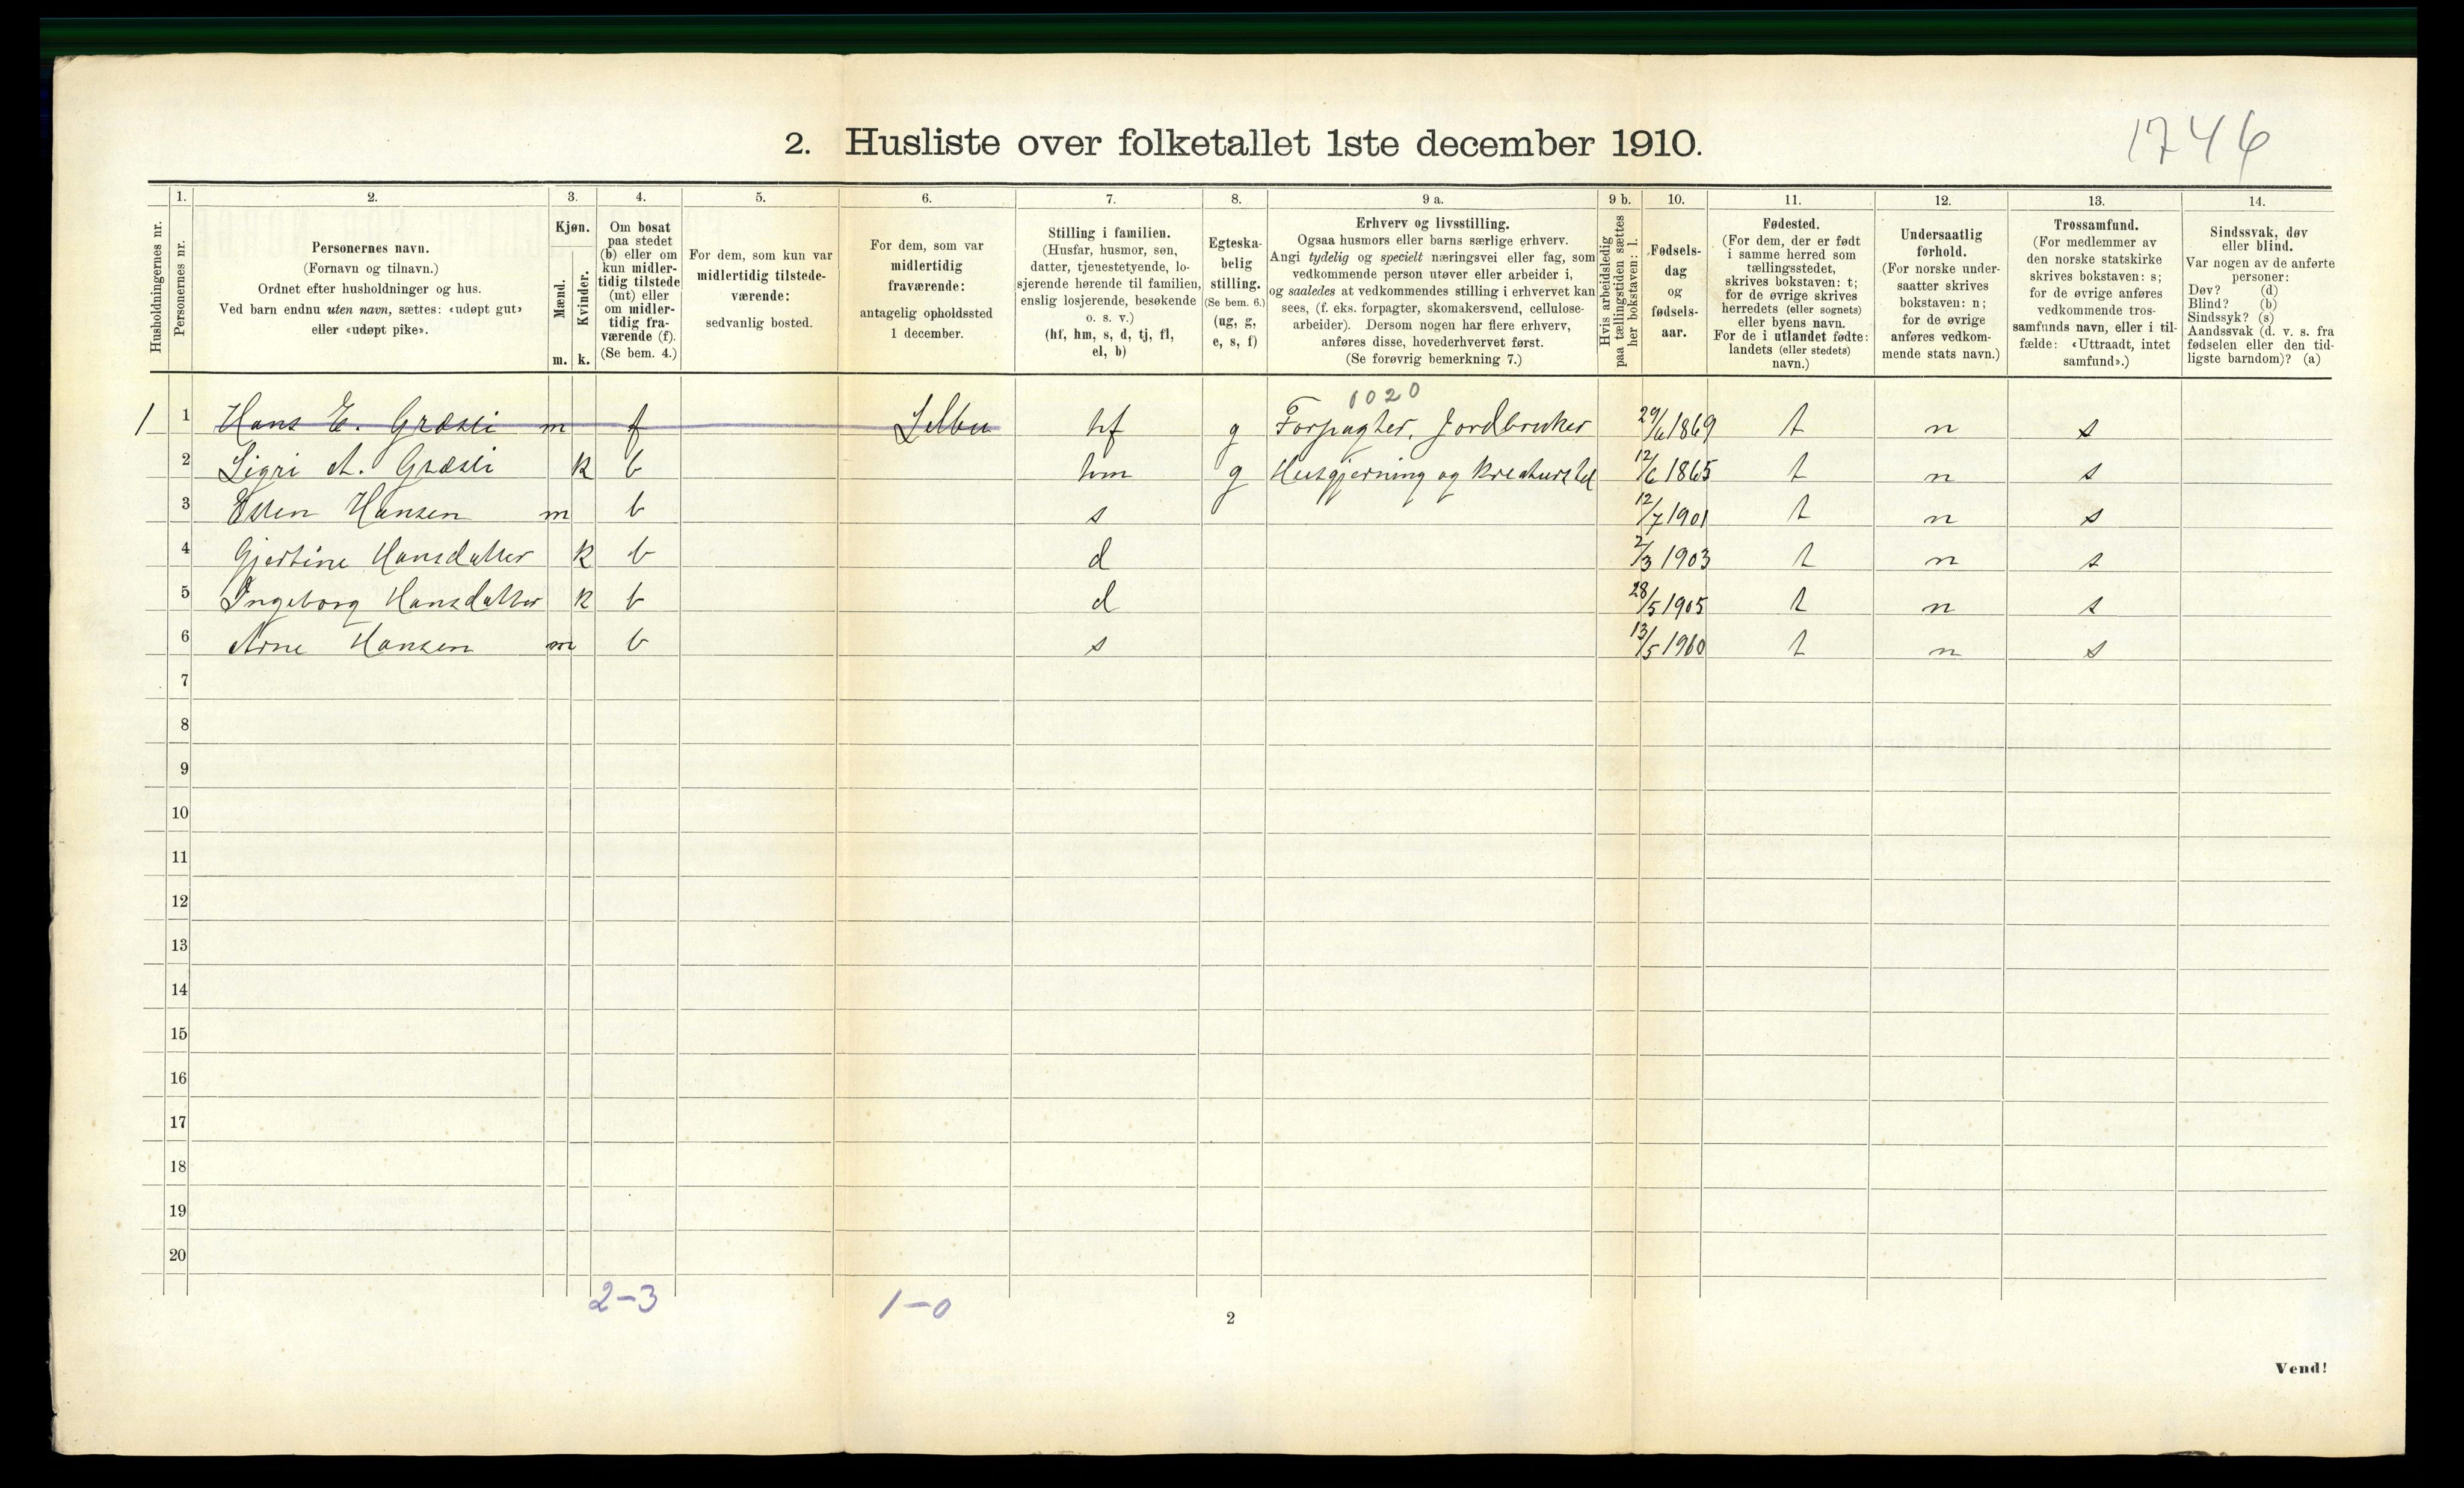 2. Husliste over folketallet 1ste december 1910.
1746
Husholdningernes nr.
1.
Personernes nr.
2.
Personernes navn.
(Fornavn og tilnavn.)
Ordnet efter husholdninger og hus.
Ved barn endnu uten navn, sættes: «udøpt gut»
eller «udøpt pike».
3.
Kjøn.
Mænd.
Kvinder.
m. k.
4.
Om bosat
paa stedet
(b) eller om
kun midler-
tidig tilstede
(mt) eller
om midler-
tidig fra-
værende (f).
(Se bem. 4.)
5.
For dem, som kun var
midlertidig tilstede-
værende:
sedvanlig bosted.
6.
For dem, som var
midlertidig
fraværende:
antagelig opholdssted
1 december.
7.
Stilling i familien.
(Husfar, husmor, søn,
datter, tjenestetyende, lo-
sjerende hørende til familien,
enslig losjerende, besøkende
o. s. v.)
(hf, hm, s, d, tj, fl,
el, b)
8.
Egteska-
belig
stilling.
(Se bem. 6.)
(ug, g,
e, s, f)
9 a.
Erhverv og livsstilling.
Ogsaa husmors eller barns særlige erhverv.
Angi tydelig og specielt næringsvei eller fag, som
vedkommende person utøver eller arbeider i,
og saaledes at vedkommendes stilling i erhvervet kan
sees, (f. eks. forpagter, skomakersvend, cellulose-
arbeider). Dersom nogen har flere erhverv,
anføres disse, hovederhvervet først.
(Se forøvrig bemerkning 7.)
9 b.
Hvis arbeidsledig
paa tællingstiden sættes
her bokstaven: l.
10.
Fødsels-
dag
og
fødsels-
aar.
11.
Fødested.
(For dem, der er født
i samme herred som
tællingsstedet,
skrives bokstaven: t;
for de øvrige skrives
herredets (eller sognets)
eller byens navn.
For de i utlandet fødte:
landets (eller stedets)
navn.)
12.
Undersaatlig
forhold.
(For norske under-
saatter skrives
bokstaven: n;
for de øvrige
anføres vedkom-
mende stats navn.)
13.
Trossamfund.
(For medlemmer av
den norske statskirke
skrives bokstaven: s;
for de øvrige anføres
vedkommende tros-
samfunds navn, eller i til-
fælde: «Uttraadt, intet
samfund».)
14.
Sindssvak, døv
eller blind.
Var nogen av de anførte
personer:
Døv? (d)
Blind? (b)
Sindssyk? (s)
Aandssvak (d. v. s. fra
fødselen eller den tid-
ligste barndom)? (a)
1020
1 1 Hans E. Græsli m f Selbu hf g Forpagter, Jordbruker 29/6 1869 t n s
2 Sigri A. Græsli k b hm g Husgjerning og Kreaturstel 12/6 1865 t n s
3 Esten Hansen m b s 12/7 1901 t n s
4 Gjertine Hansdatter k b d 2/3 1903 t n s
5 Ingeborg Hansdatter k b d 28/5 1905 t n s
6 Arne Hansen m b s 13/5 1910 t n s
7
8
9
10
11
12
13
14
15
16
17
18
19
20
2-3
1-0
2
Vend!